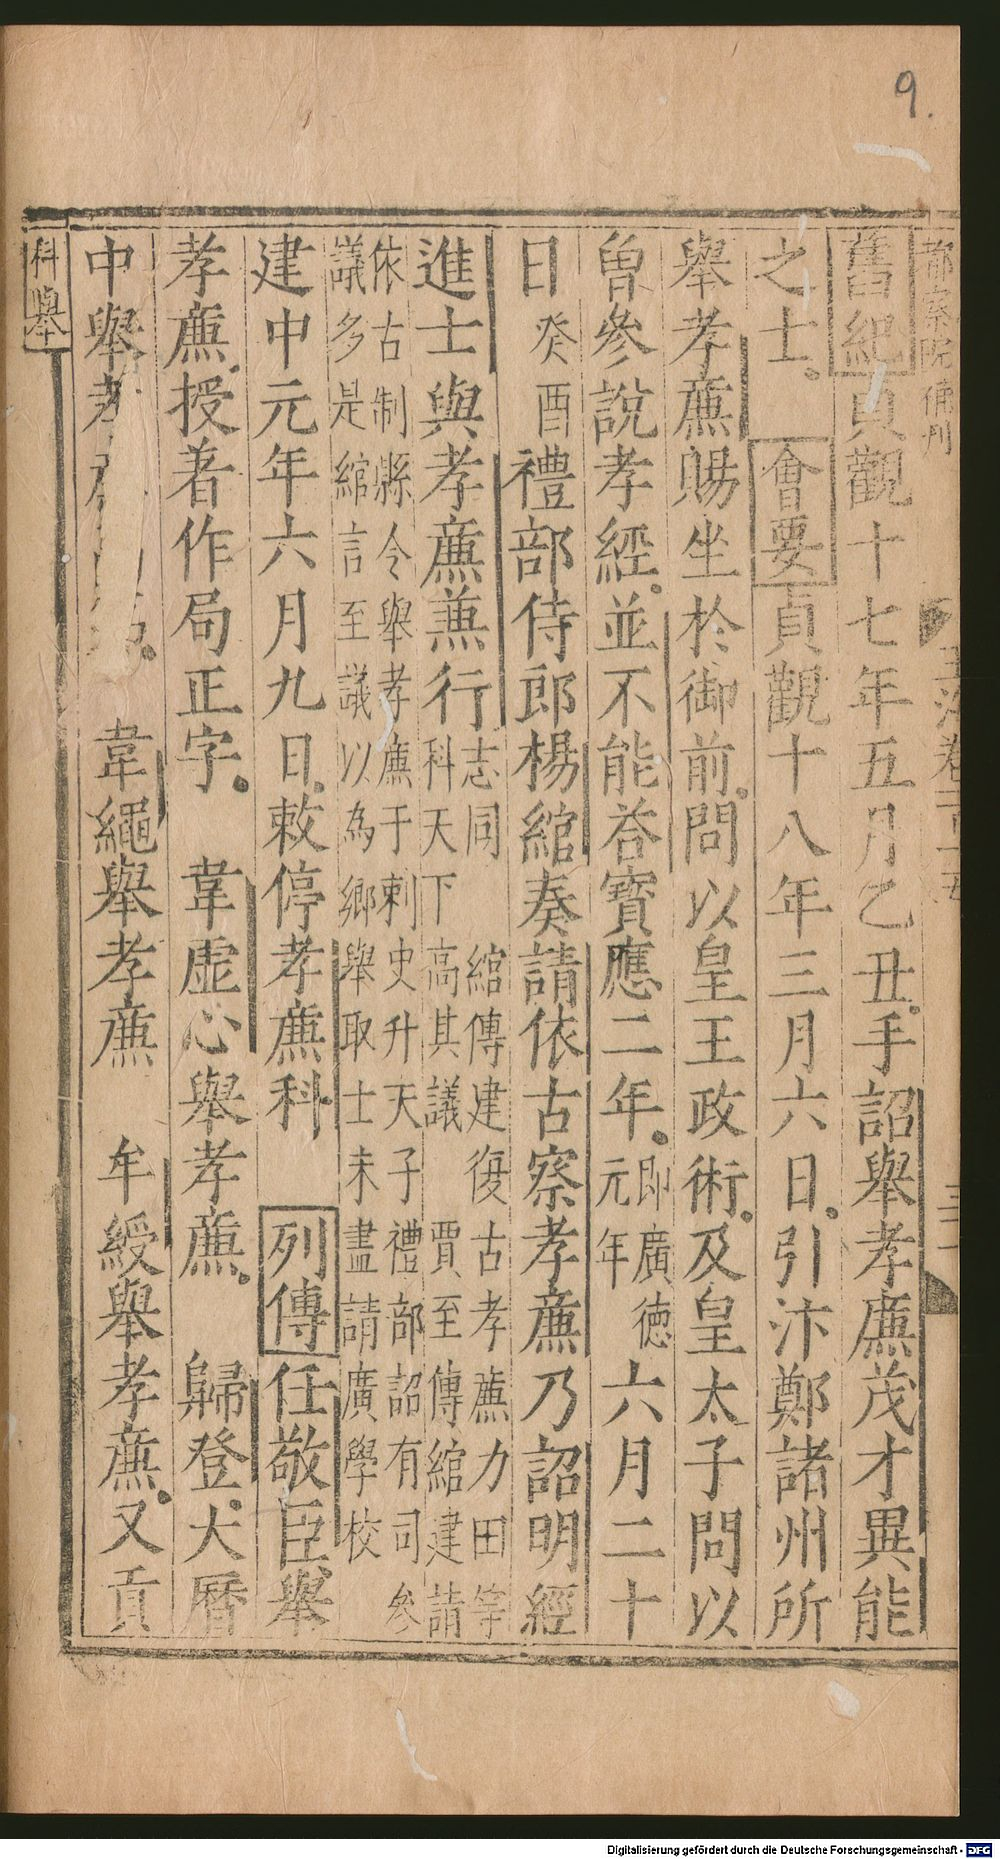 9.
都察院
舊紀貞觀十七年五月乙丑手詔舉孝廉茂才異能
之士會要貞觀十八年三月六日引汴鄭諸州所
舉孝廉賜坐於御前問以皇王政術及皇太子問以
曾參說孝經並不能荅寶應二年即廣德元年六月二十
日癸酉禮部侍郎楊綰奏請依古察孝廉乃詔明經
進士與孝廉兼行志同綰傳建復古孝廉力田等科天下高其議賈至傳綰建請
依古制縣令舉孝廉于刺史升天子禮部詔有司參議多是綰言至議以為鄉舉取士未盡請廣學校
建中元年六月九日敕停孝廉科列傳任敬臣舉
孝廉授著作局正字韋虛心舉孝廉歸登大曆
中舉孝韋繩舉孝廉牟綬舉孝廉又貢
科舉
Digitalisierung gefördert durch die Deutsche Forschungsgemeinschaft - DFG